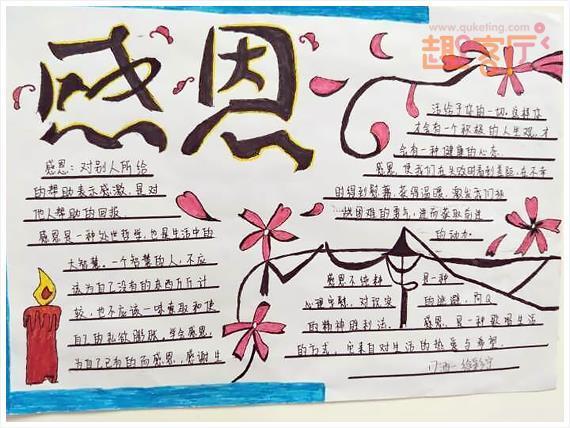 感恩
www.quketing.com
趣客厅
感恩：对别人所给
的帮助表示感激，是对
他人帮助的回报
感恩是一种处世哲学，也是生活中的
大智慧。一个智慧的人，不应
该为自己没有的东西斤斤计
较，也不应该一味索取和使
自己的私欲膨胀。学会感恩，
为自己已有的而感恩，感谢生
活给予你的一切。这样你
才会有一个积极的人生观，才
会有一种健康的心态
感恩，使我们在失败时看到差距，在不幸
时得到慰藉，获得温暖，激发我们挑
战困难的勇气，进而获取前进
的动力。
感恩不纯粹是一种
心理安慰，对现实的逃避，阿Q
的精神胜利法。感恩，是一种歌唱生活
的方式，它来自对生活的热爱与希望。